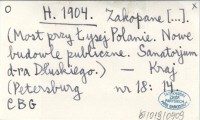 O H. 1904. Zakopane [...].
(Most przy Łysej Polanie. Nowe
budowle publiczne. Sanatorjum
dra Dłuskiego.) — Kraj
(Petersburg nr 18: 14.
CBG
B|1018|0909